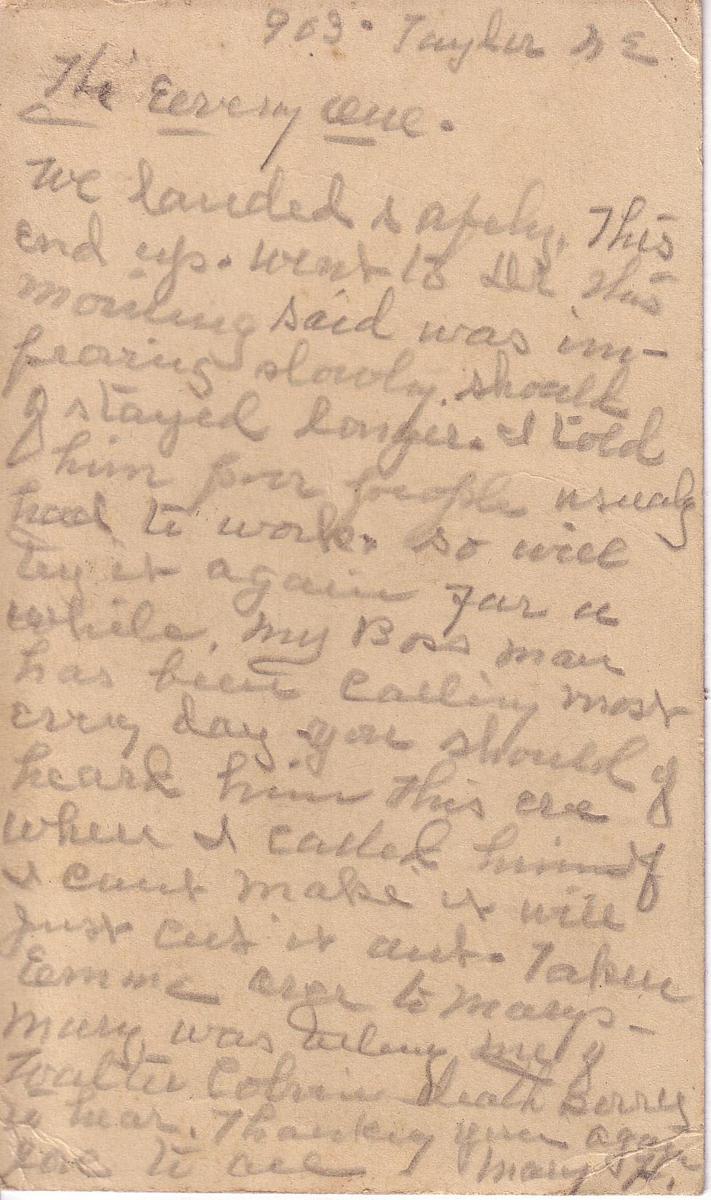 903. Taylor N E
Hi Eevery One.
We landed safely. This
end up. went to Dr this
morning said was im-
pearing slowly, should
of stayed longer. I told
him poor people usualy
had to work. so will
try it again for a
while. My Boss man
has been calling most
every day you should of
heard him this eve
when I called him if
I cant make it will
just cut it out. Taken
Eemma over to Marys-
Mary was telling me of
Walter Colvin death Sorry
to hear. Thanking you again
to all Mary H.